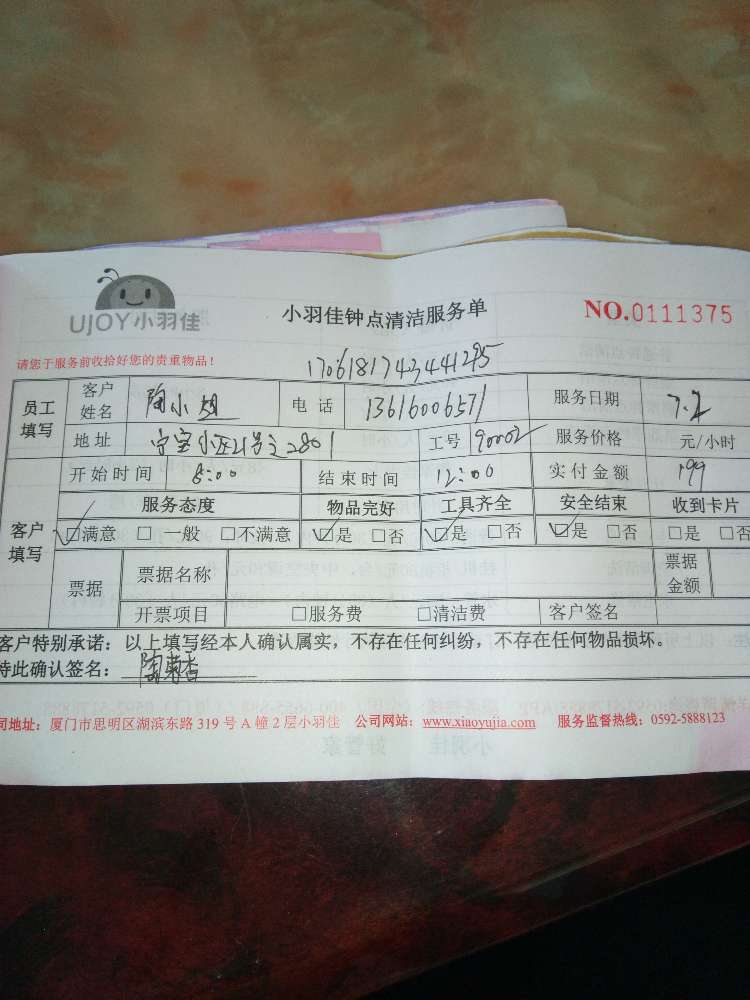 UJOY小羽佳
小羽佳钟点清洁服务单
NO.0111375
请您于服务前收拾好您的贵重物品!
1706181743441295
员工填写 客户姓名 陶小姐 电话 13616006571 服务日期 7.2
地址 宝小区21号之2801 工号 90002 服务价格 元/小时
开始时间 8:00 结束时间 12:00 实付金额 199
客户填写 服务态度 物品完好 工具齐全 安全结束 收到卡片
☑满意 □一般 □不满意 ☑是 □否 ☑是 □否 ☑是 □否 □是 □否
票据 票据名称 票据金额
开票项目 □服务费 □清洁费 客户签名
客户特别承诺:以上填写经本人确认属实,不存在任何纠纷,不存在任何物品损坏。
特此确认签名:陶菊香
司地址:厦门市思明区湖滨东路 319 号 A 幢 2 层小羽佳 公司网站:www.xiaoyujia.com 服务监督热线:0592-5888123